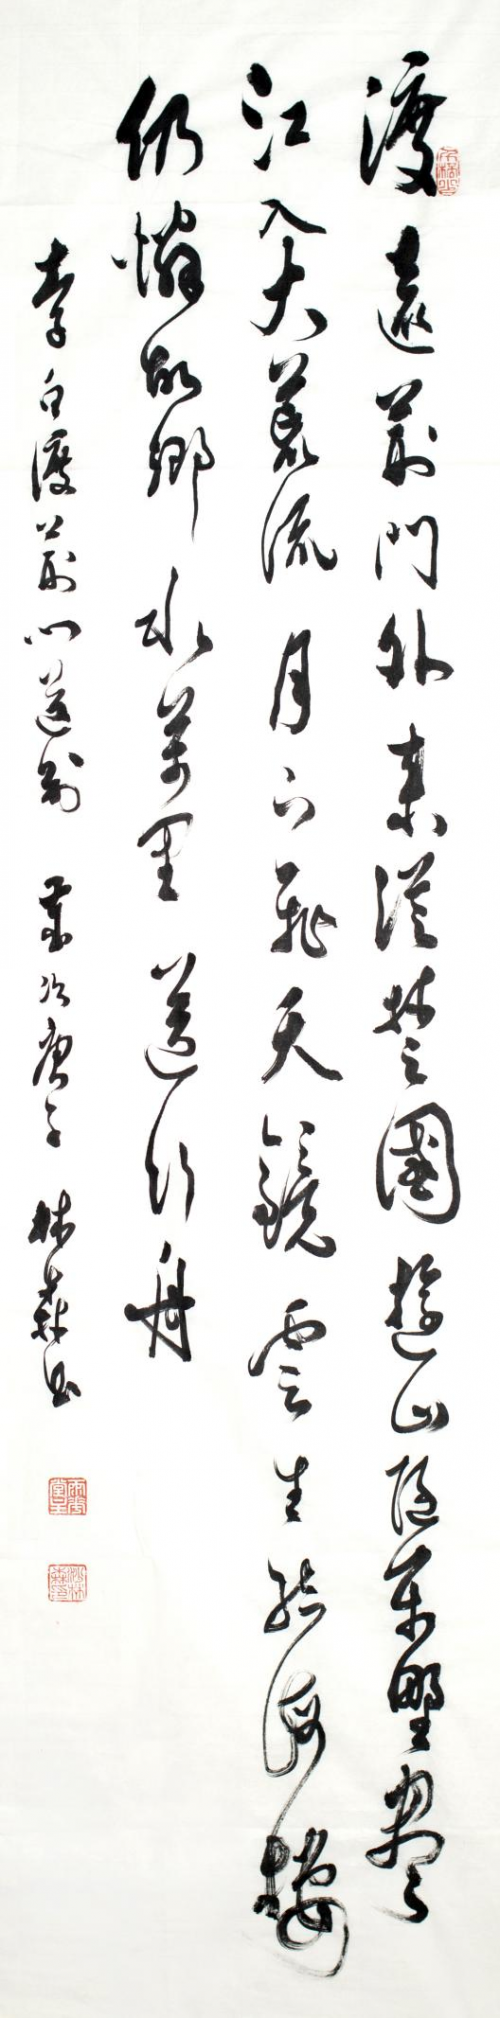 渡遠荊門外來從楚國遊山隨平野盡
江入大荒流月下飛天鏡雲生結海樓
仍憐故鄉水萬里送行舟
李白渡荊門送別 歲次庚子 林森书